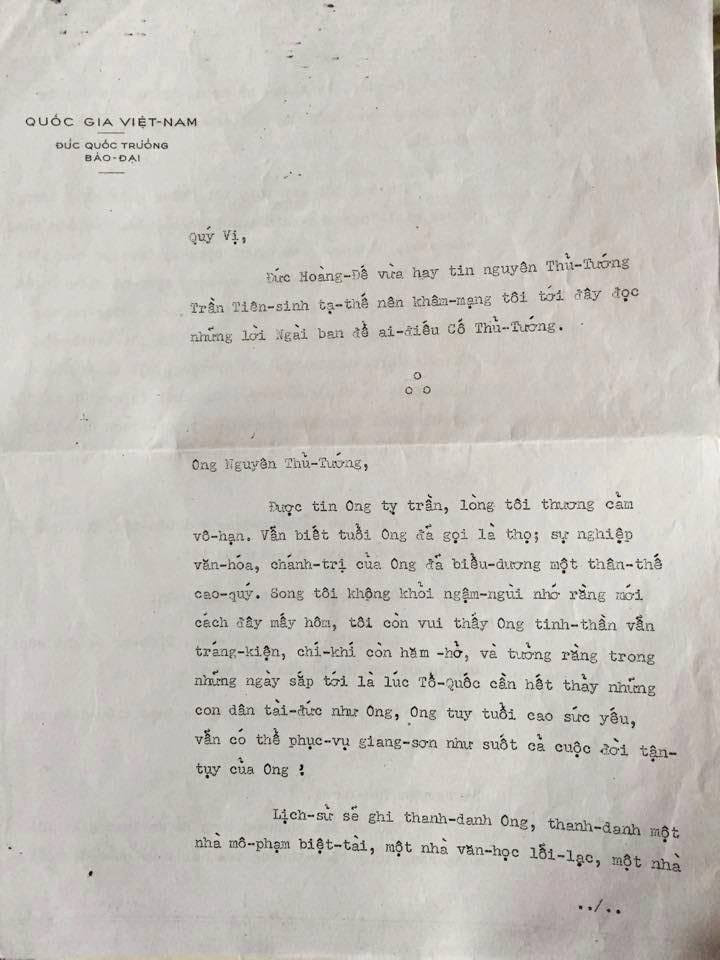 QUỐC GIA VIỆT-NAM
ĐỨC QUỐC TRƯỞNG
BẢO-ĐẠI
Quý Vị,
Đức Hoàng-Đế vừa hay tin nguyên Thủ-Tướng
Trần Tiên-sinh tạ-thế nên khâm-mạng tôi tới đây đọc
những lời Ngài ban để ai-điếu Cố Thủ-Tướng.
Ong Nguyên Thủ-Tướng,
Được tin Ong tỵ trần, lòng tôi thương cảm
vô-hạn. Vẫn biết tuổi Ong đã gọi là thọ; sự nghiệp
văn-hóa, chánh-trị của Ong đã biểu-dương một thân-thế
cao-quý. Song tôi không khỏi ngậm-ngùi nhớ rằng mới
cách đây mấy hôm, tôi còn vui thấy Ong tinh-thần vẫn
tráng-kiện, chí-khí còn hăm -hở, và tưởng rằng trong
những ngày sắp tới là lúc Tổ-Quốc cần hết thảy những
con dân tài-đức như Ong, Ong tuy tuổi cao sức yếu,
vẫn có thể phục-vụ giang-sơn như suốt cả cuộc đời tận-
tụy của Ong !
Lịch-sử sẽ ghi thanh-danh Ong, thanh-danh một
nhà mô-phạm biệt-tài, một nhà văn-học lỗi-lạc, một nhà
../..